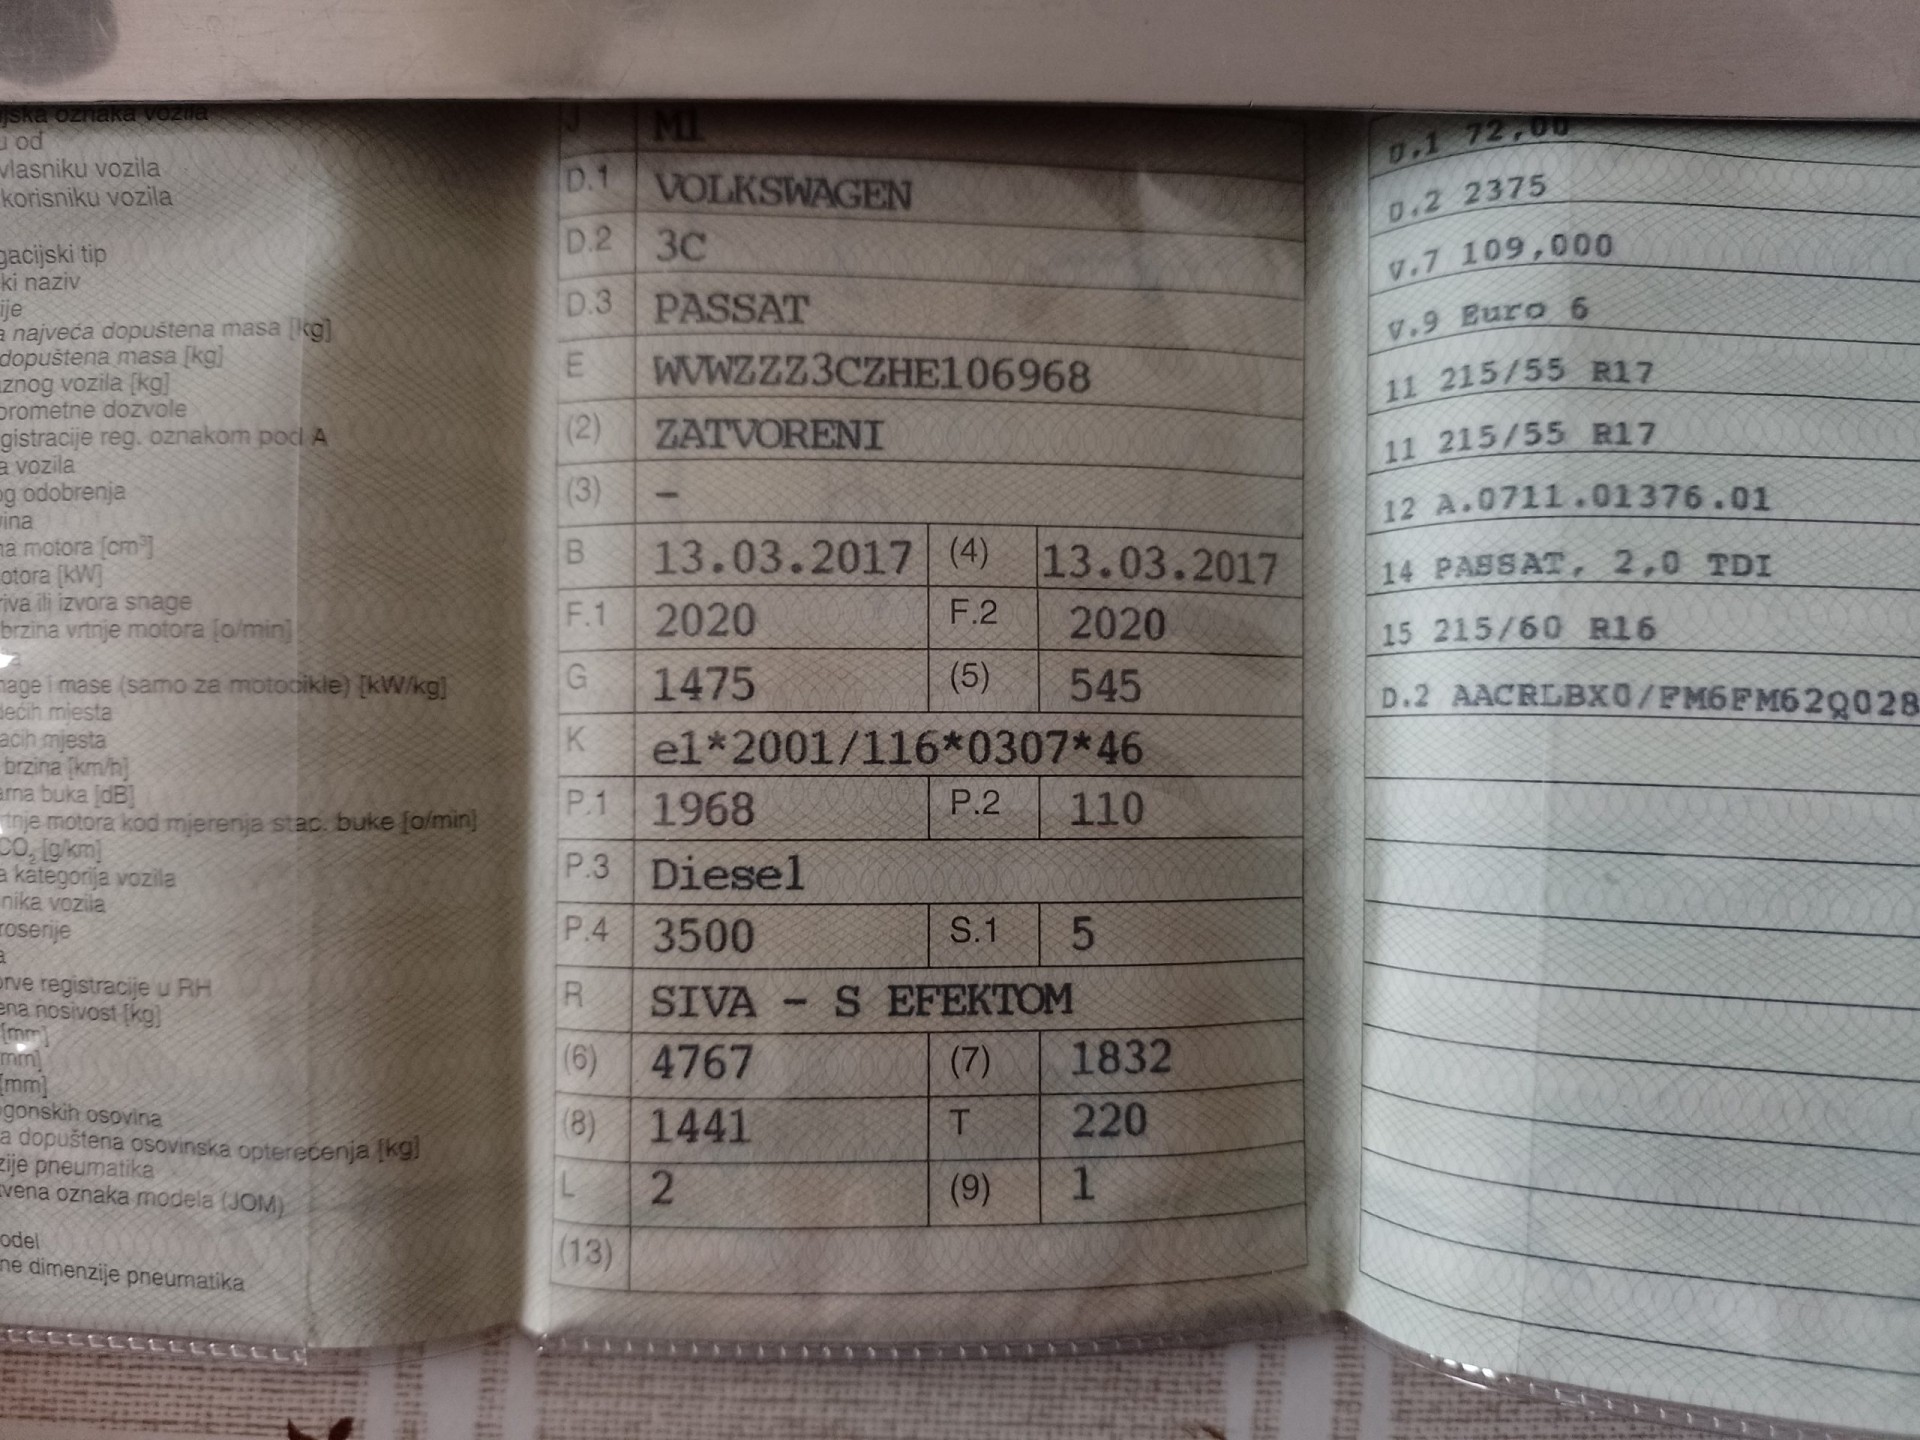 oznaka vozila
u od
vlasniku vozila
korisniku vozila
gacijski tip
ki naziv
ije
a najveća dopuštena masa [kg]
dopuštena masa [kg]
znog vozila [kg]
prometne dozvole
gistracije reg. oznakom pod A
a vozila
og odobrenja
vina
na motora [cm³]
otora [kW]
riva ili izvora snage
brzina vrtnje motora [o/min]
a
nage i mase (samo za motocikle) [kW/kg]
dećih mjesta
aćih mjesta
brzina [km/h]
arna buka [dB]
rtnje motora kod mjerenja stac. buke [o/min]
CO₂ [g/km]
a kategorija vozila
nika vozila
roserije
a
prve registracije u RH
ena nosivost [kg]
[mm]
[mm]
[mm]
ogonskih osovina
a dopuštena osovinska opterećenja [kg]
zije pneumatika
tvena oznaka modela (JOM)
odel
ne dimenzije pneumatika
J M1
D.1 VOLKSWAGEN
D.2 3C
D.3 PASSAT
E WVWZZZ3CZHE106968
(2) ZATVORENI
(3) –
B 13.03.2017 (4) 13.03.2017
F.1 2020 F.2 2020
G 1475 (5) 545
K e1*2001/116*0307*46
P.1 1968 P.2 110
P.3 Diesel
P.4 3500 S.1 5
R SIVA – S EFEKTOM
(6) 4767 (7) 1832
(8) 1441 T 220
L 2 (9) 1
(13)
U.1 72,00
U.2 2375
V.7 109,000
V.9 Euro 6
11 215/55 R17
11 215/55 R17
12 A.0711.01376.01
14 PASSAT, 2,0 TDI
15 215/60 R16
D.2 AACRLBX0/FM6FM62Q028